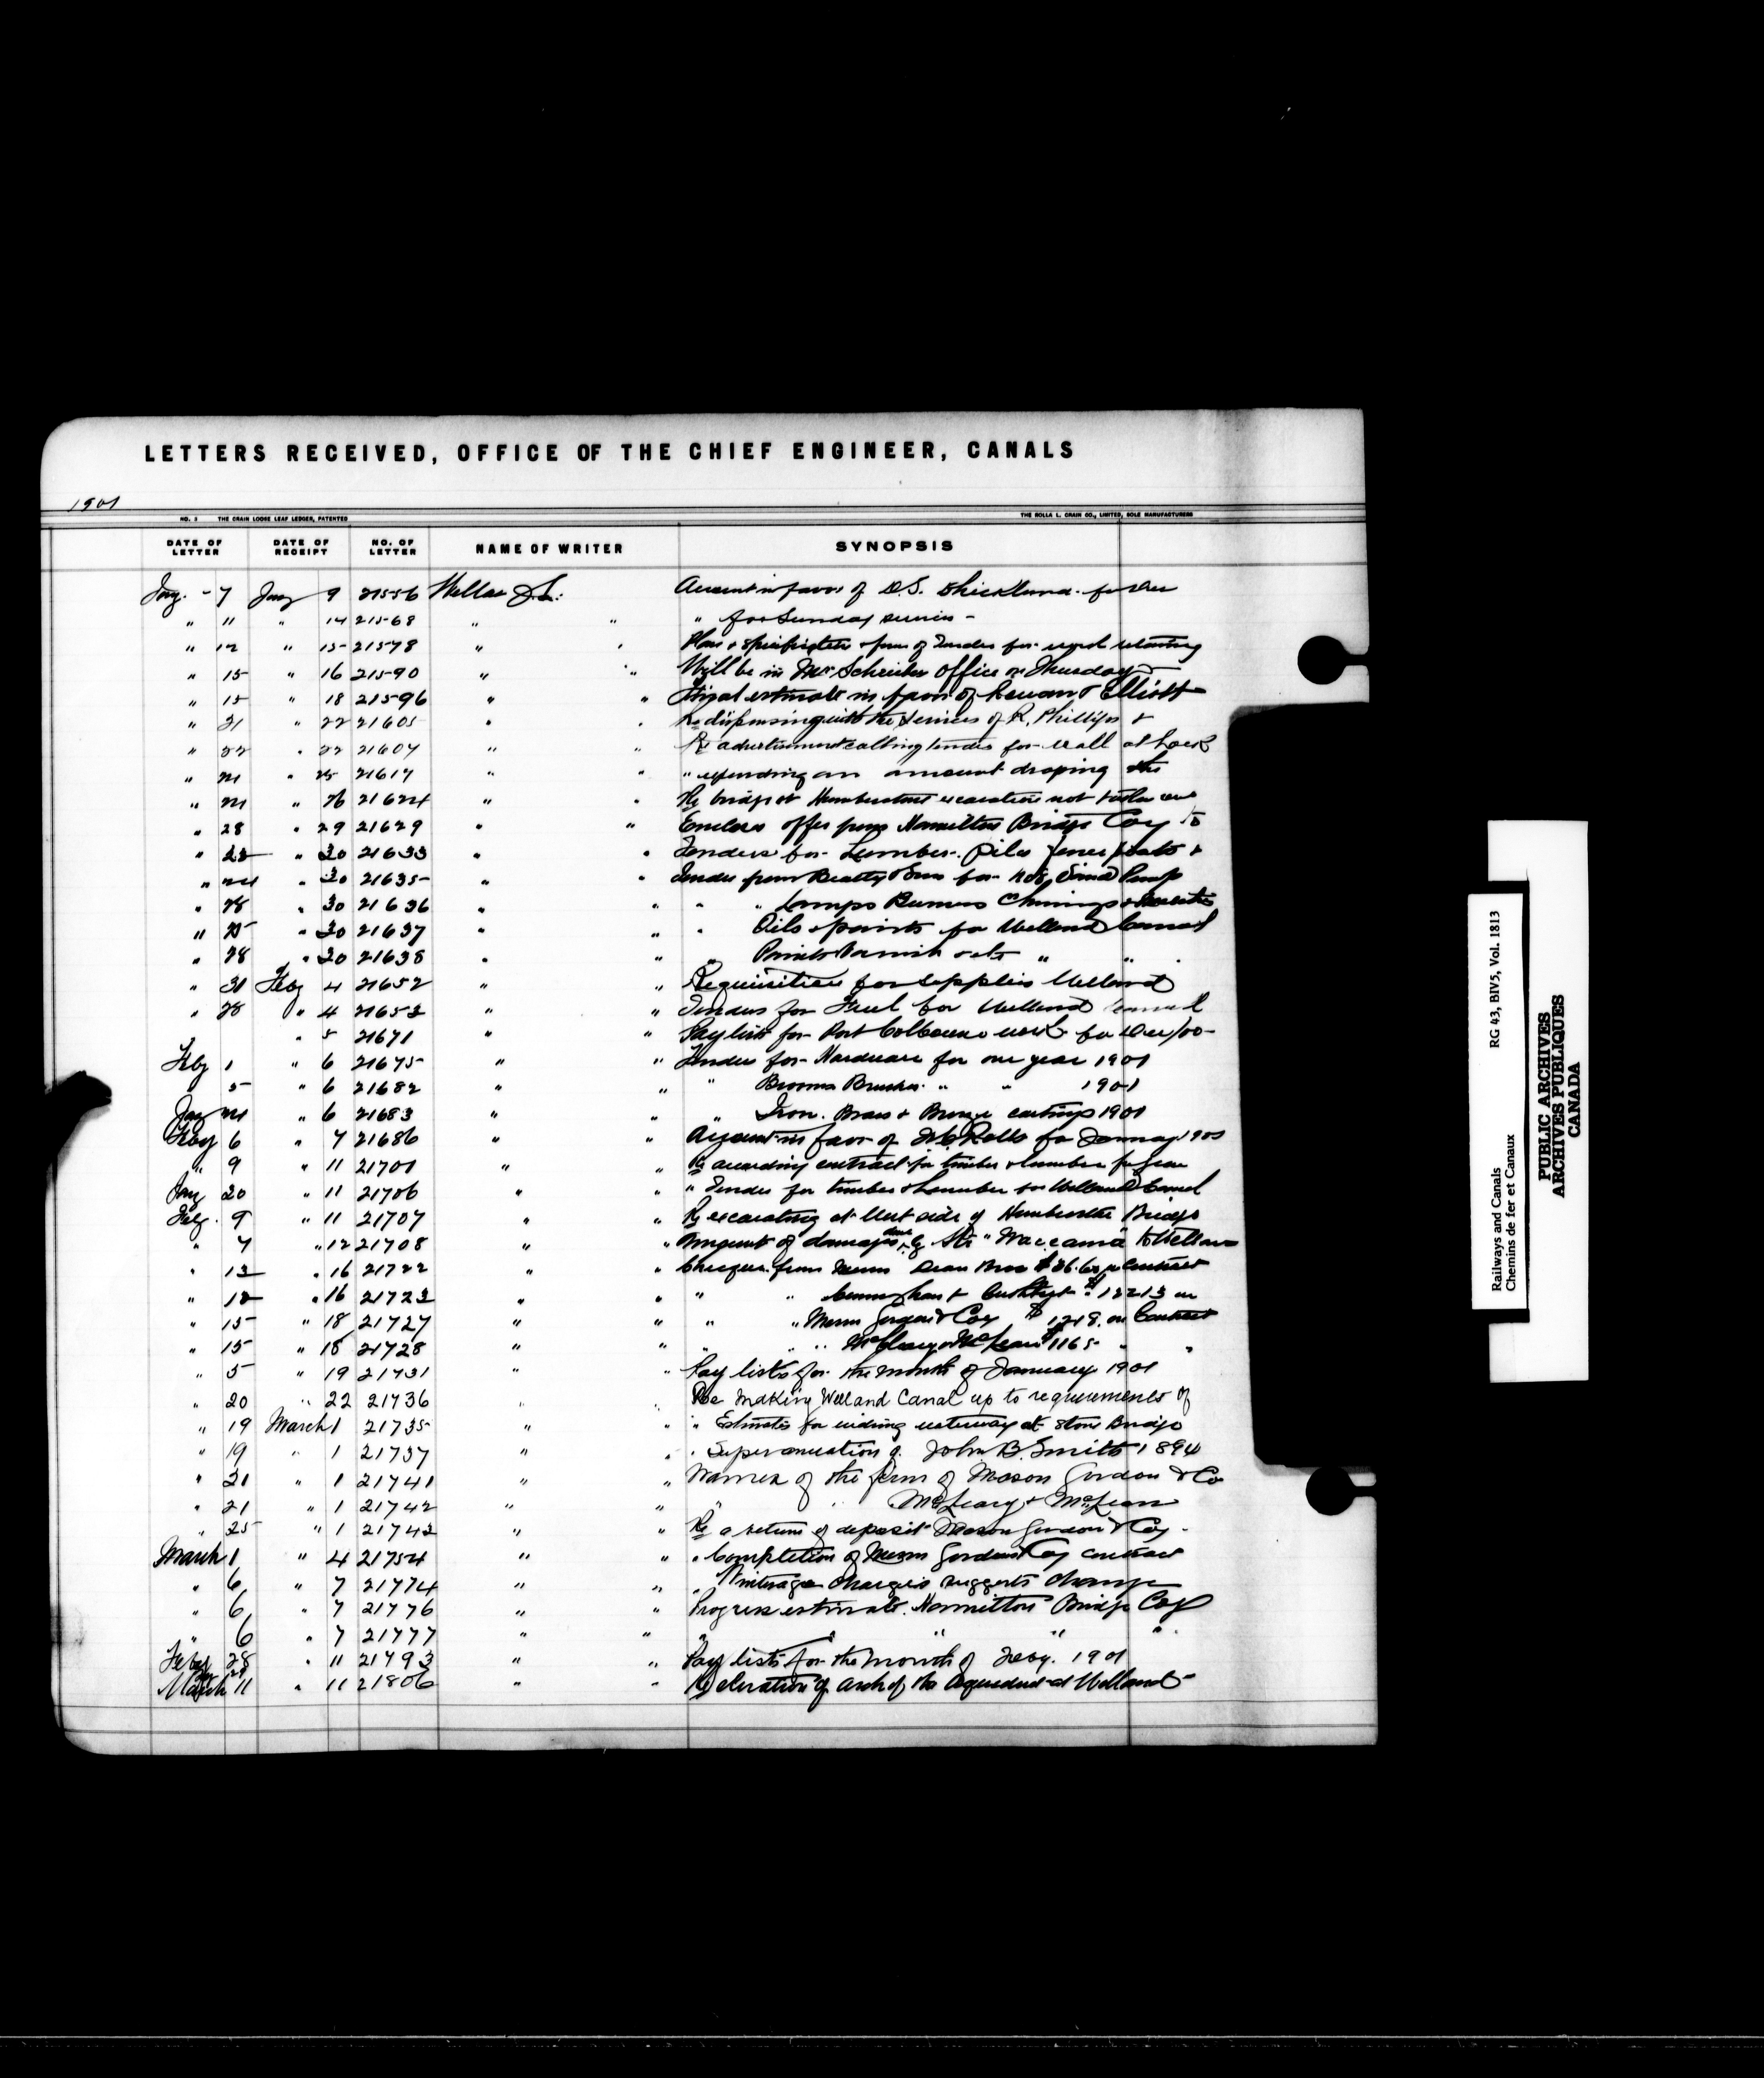 LETTERS RECEIVED, OFFICE OF THE CHIEF ENGINEER, CANALS
1901
NO. 3 THE CRAIN LOOSE LEAF LEDGER, PATENTED THE ROLLA L. CRAIN CO., LIMITED, SOLE MANUFACTURERS
DATE OF LETTER DATE OF RECEIPT NO. OF LETTER NAME OF WRITER SYNOPSIS
Jany. 7 Jany 9 21556 Weller J.L. Account in favor of D.S. for Dec
" 11 " 14 21568 " " " for Sunday
" 12 " 15 21578 " " Plan & specification & form of Tender for
" 15 " 16 21590 " " Will be in Mr Schreiber office on Thursday
" 15 " 18 21596 " " Final estimate in favor of & Elliott
" 21 " 22 21605 " " Re dispensing with the services of R. Phillips &
" 22 " 22 21607 " " Re advertisement calling tenders for wall at Lock
" " 25 21617 " " " refunding an amount the
" " 26 21624 " " Re bridge at Humberstone excavation not
" 28 " 29 21629 " " Enclose offer from Hamilton Bridge Coy to
" " 30 21633 " " Tenders for Lumber. Piles fence posts &
" " 30 21635 " " Tender from Beatty & Sons for Pump
" 28 " 30 21636 " " " " Lamps Burners Chimneys &
" 25 " 30 21637 " " " Oils & paints for Welland Canal
" 28 " 30 21638 " " " Paints Varnish " "
" 31 Feby 4 21652 " " Requisition for supplies Welland
" 28 " 4 21653 " " Tenders for Fuel for Welland Canal
" 5 21671 " " Pay lists for Port Colborne work for Dec/00
Feby 1 " 6 21675 " " Tender for Hardware for one year 1901
5 " 6 21682 " " " Brooms Brushes " " 1901
Jany " 6 21683 " " " Iron. Brass & Bronze castings 1901
Feby 6 " 7 21686 " " Account in favor of for January 1901
" 9 " 11 21701 " " Re awarding contract for timber & lumber for year
Jany 20 " 11 21706 " " " Tender for timber & Lumber for Welland Canal
Feby. 9 " 11 21707 " " Re excavating at West side of Humberstone Bridge
" 7 " 12 21708 " " Amount of damage done by Str "Waccama" to Welland
" 13 " 16 21722 " " Cheque from Messrs Dean Bros Contract
" 12 " 16 21723 " " " " on
" 15 " 18 21727 " " " " Messrs Gordon & Coy $ 1218. on Contract
" 15 " 18 21728 " " " " McCleary & McLean $1165 " "
" 5 " 19 21731 " " Pay lists for the month of January 1901
" 20 " 22 21736 " " Re making Welland Canal up to requirements of
" 19 March 1 21735 " " " Estimates for widing waterway at Stone Bridge
" 19 " 1 21737 " " " Superannuation of John B. Smith 1894
" 21 " 1 21741 " " Names of the firm of Mason Gordon & Co
" 21 " 1 21742 " " " " McCleary & McLean
" 25 " 1 21743 " " Re a return of deposit Mason Gordon & Coy.
March 1 " 4 21754 " " " Completion of Messrs Gordon & Coy contract
" 6 " 7 21774 " " " Winterage charges suggests change
" 6 " 7 21776 " " Progress estimate. Hamilton Bridge Coy
" 6 " 7 21777 " " " " " "
Feby 28 " 11 21793 " " Pay lists for the month of Feby. 1901
March 11 " 11 21806 " " Re elevation of arch of the aqueduct at Welland
Railways and Canals RG 43, BIV5, Vol. 1813
Chemins de fer et Canaux
PUBLIC ARCHIVES
ARCHIVES PUBLIQUES
CANADA